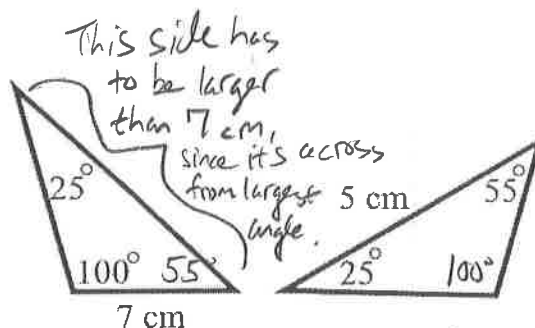 This side has
to be larger
than 7 cm,
since it's across
from largest
angle.
25°
100° 55°
7 cm
5 cm
55°
25° 100°